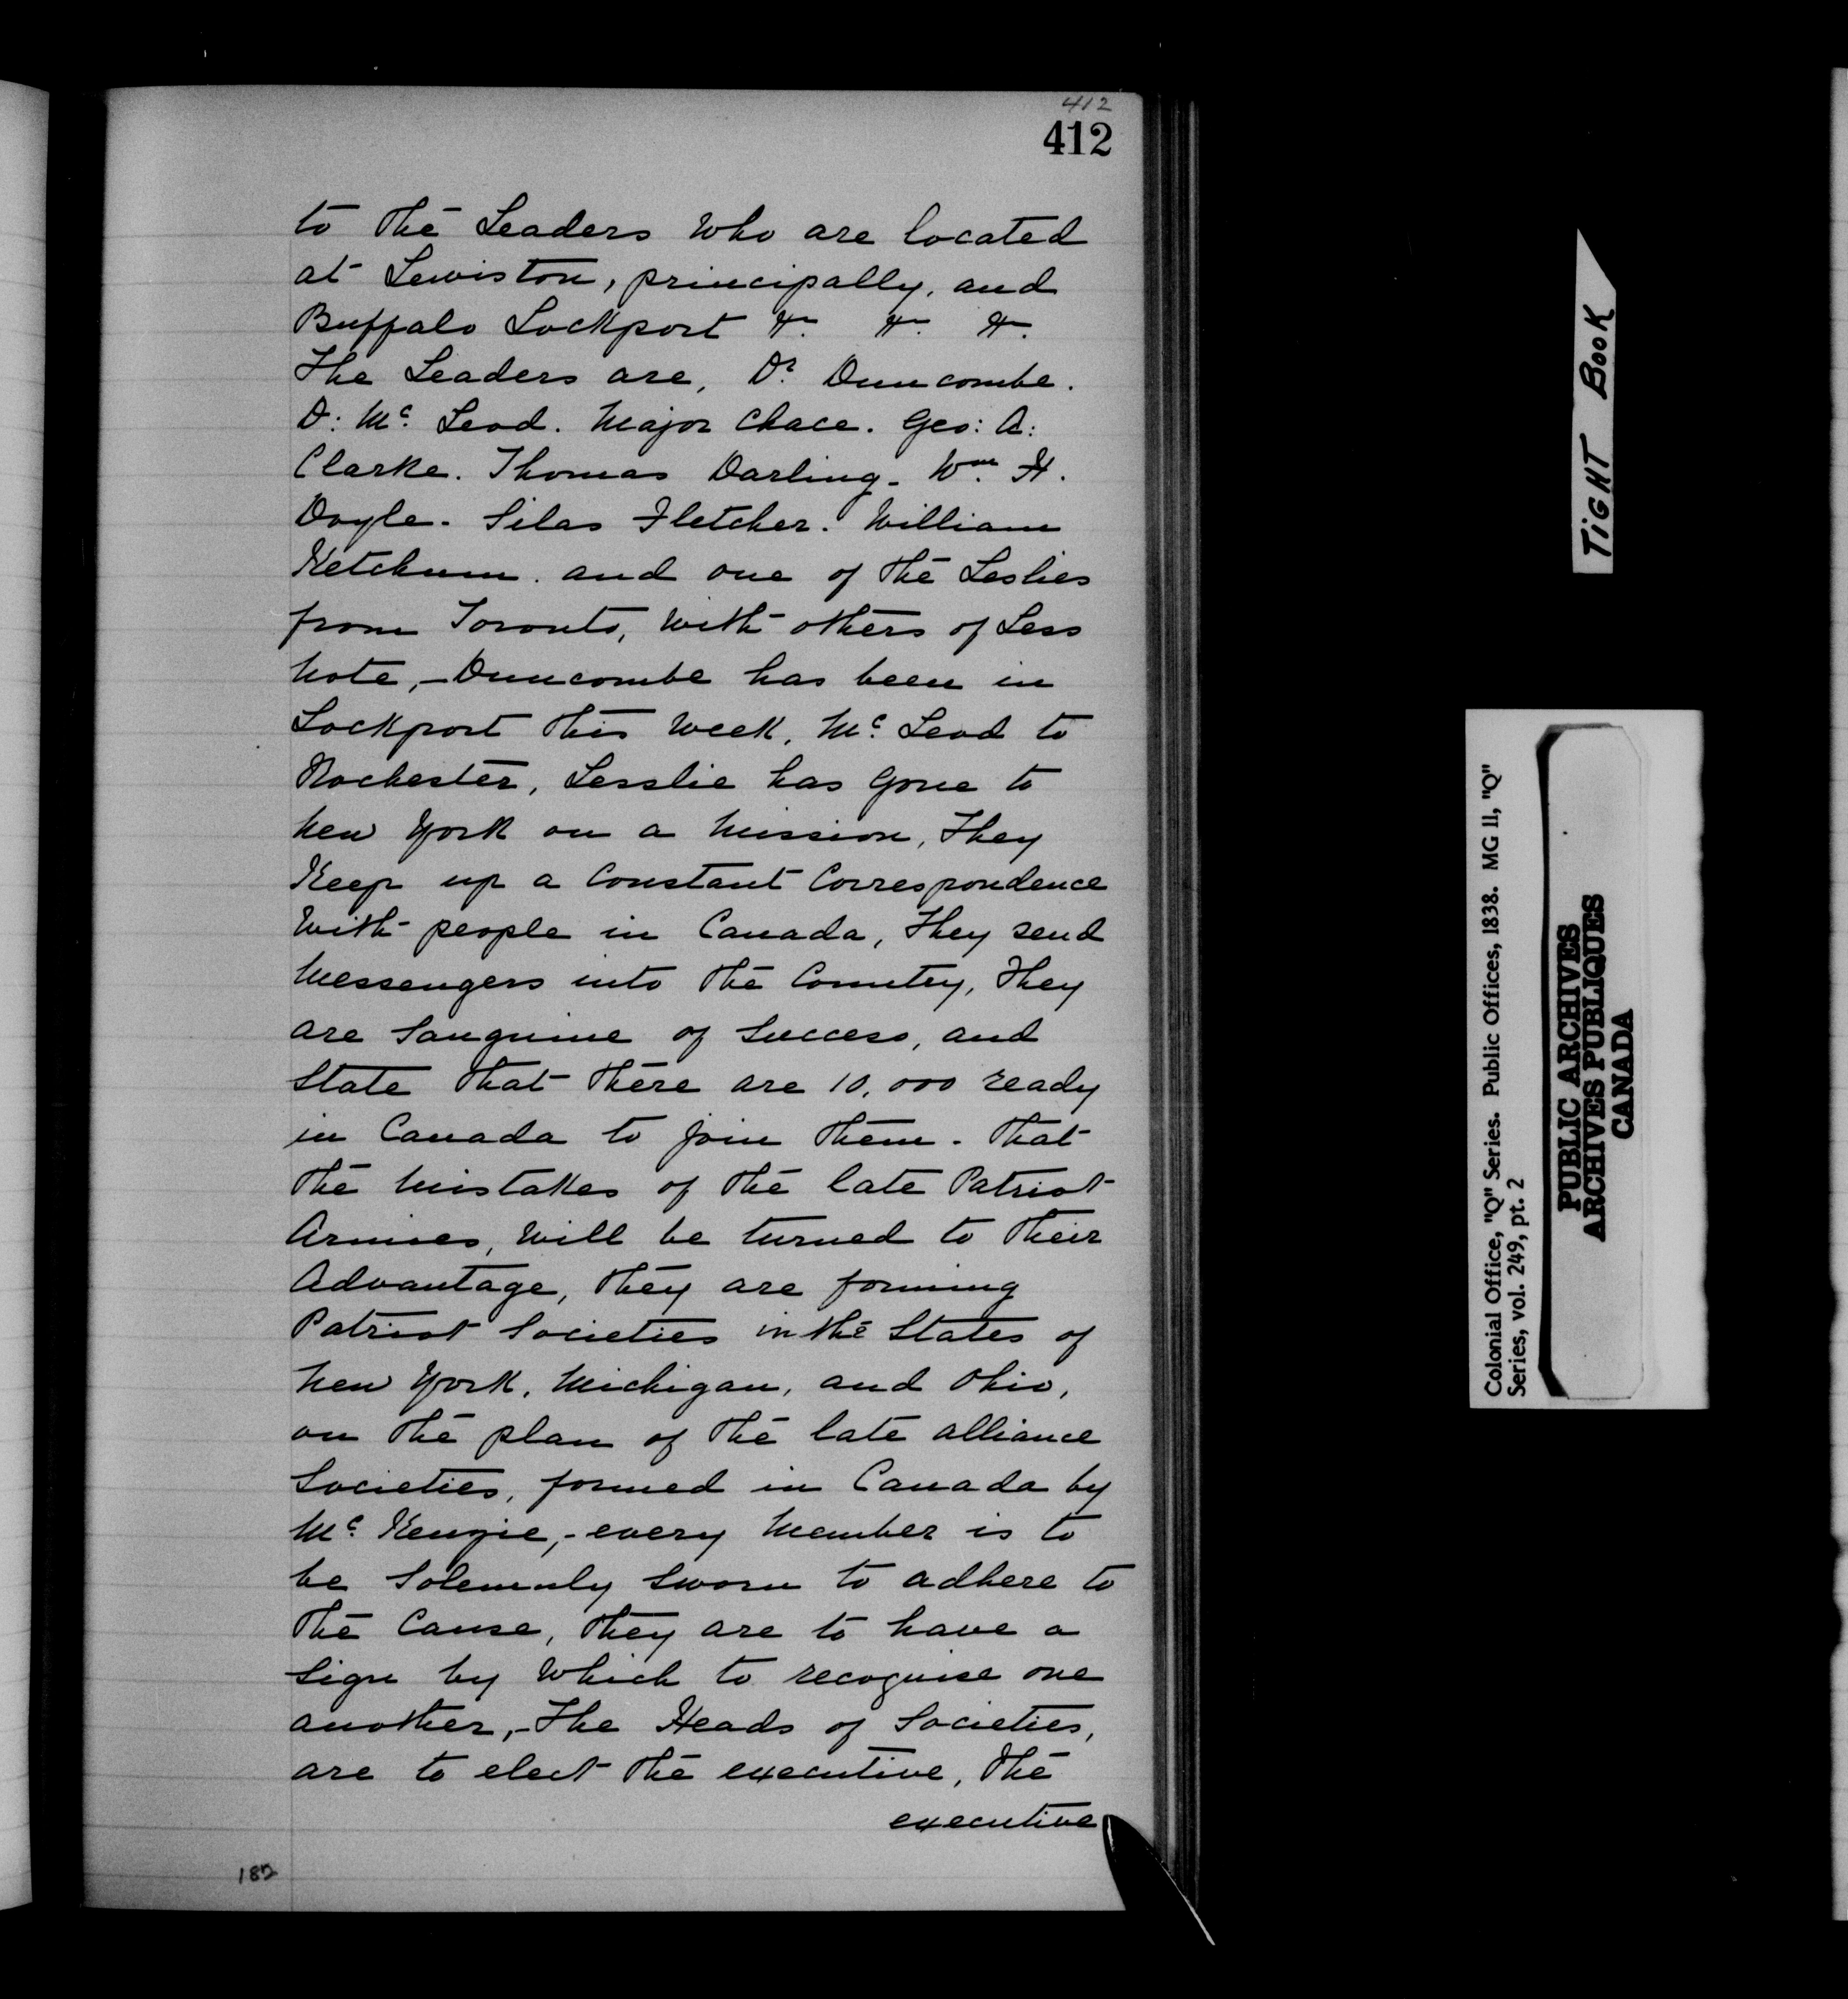 412
412
to the Leaders Who are located
at Lewiston, principally, and
Buffalo Lockport &c. &c. &c.
The Leaders are, Dr. Duncombe.
D: Mc. Leod. Major Chace. Geo: A:
Clarke. Thomas Darling - Wm. H.
Doyle. Silas Fletcher. William
Ketchum. and one of the Leslies
from Toronto, With others of Less
Note, - Duncombe has been in
Lockport this Week, Mc. Leod to
Rochester, Lesslie has Gone to
New York on a Mission, They
Keep up a Constant Correspondence
With people in Canada, They send
Messengers into the Country, They
are Sanguine of Success, and
State that there are 10,000 ready
in Canada to join them - that
the Mistakes of the late Patriot
Armies, Will be turned to their
Advantage, they are forming
Patriot Societies in the States of
New York, Michigan, and Ohio,
on the plan of the late alliance
Societies, formed in Canada by
Mc. Kenzie, - every Member is to
be Solemnly Sworn to adhere to
the Cause, they are to have a
Sign by Which to recognise one
another, - The Heads of Societies,
are to elect the executive, the
executive
187
TiGHT BOOK
Colonial Office, "Q" Series. Public Offices, 1838. MG 11, "Q"
Series, vol. 249, pt. 2
PUBLIC ARCHIVES
ARCHIVES PUBLIQUES
CANADA